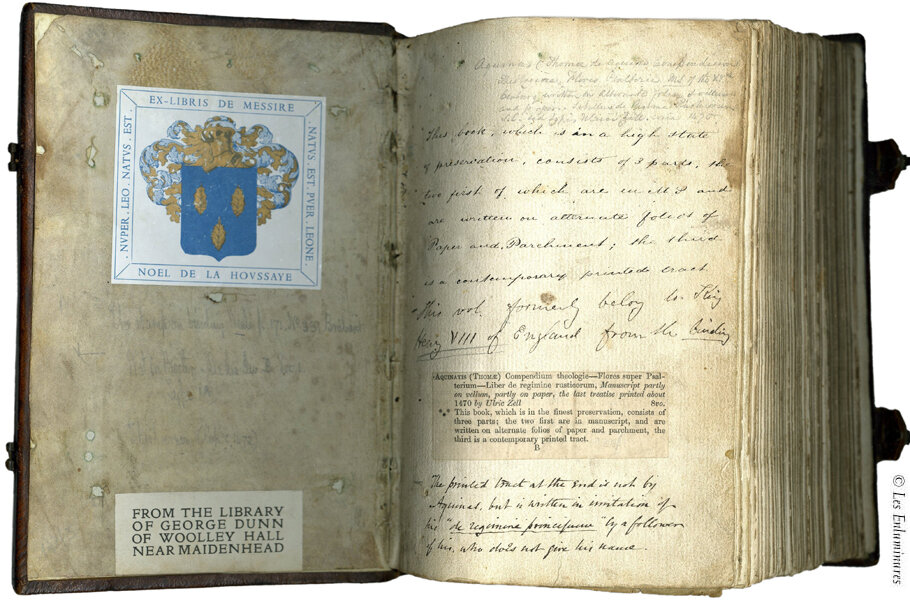 EX-LIBRIS DE MESSIRE
NVPER . LEO . NATVS . EST .
NATVS . EST . PVER . LEONE .
NOEL DE LA HOVSSAYE
FROM THE LIBRARY
OF GEORGE DUNN
OF WOOLLEY HALL
NEAR MAIDENHEAD
Aquinas Thomae de Aquino Compendium
Theologiae, Flores Psalterii. MS of the XVth
Century written on alternate folios of vellum
and paper.
This book, which is in a high state
of preservation, consists of 3 parts, the
two first of which are in MS and
are written on alternate folios of
Paper and Parchment; the third
is a contemporary printed tract
This vol. formerly belong to King
Henry VIII of England from the binding
AQUINATIS (THOMÆ) Compendium theologie—Flores super Psal-
terium—Liber de regimine rusticorum, Manuscript partly
on vellum, partly on paper, the last treatise printed about
1470 by Ulric Zell 8vo.
⁂ This book, which is in the finest preservation, consists of
three parts; the two first are in manuscript, and are
written on alternate folios of paper and parchment, the
third is a contemporary printed tract.
B
The printed tract at the end is not by
Aquinas, but is written in imitation of
his "de regimine principum" by a follower
of his, who does not give his name.
© Les Enluminures